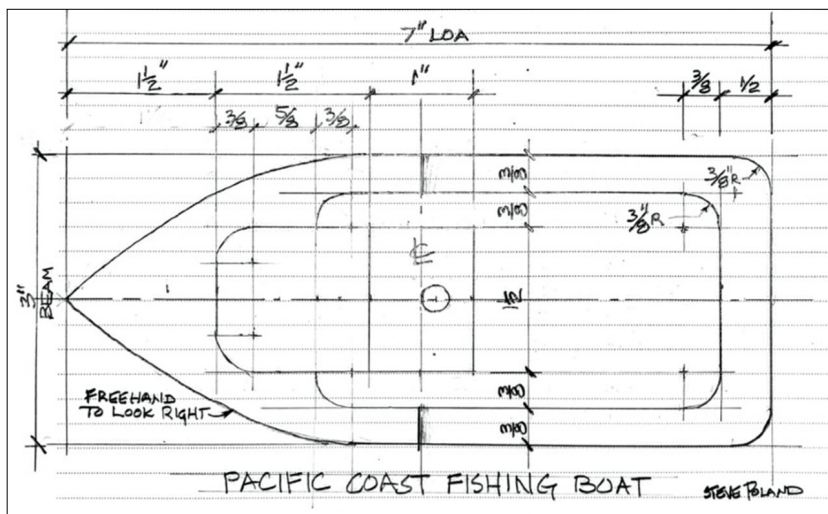 7" LOA
1½" 1½" 1" 3/8 1/2
3/8 5/8 3/8
3/8
3/8"R
3/8
3/8"R
℄
3" BEAM
1½
3/8
FREEHAND
TO LOOK RIGHT
3/8
PACIFIC COAST FISHING BOAT
STEVE POLAND